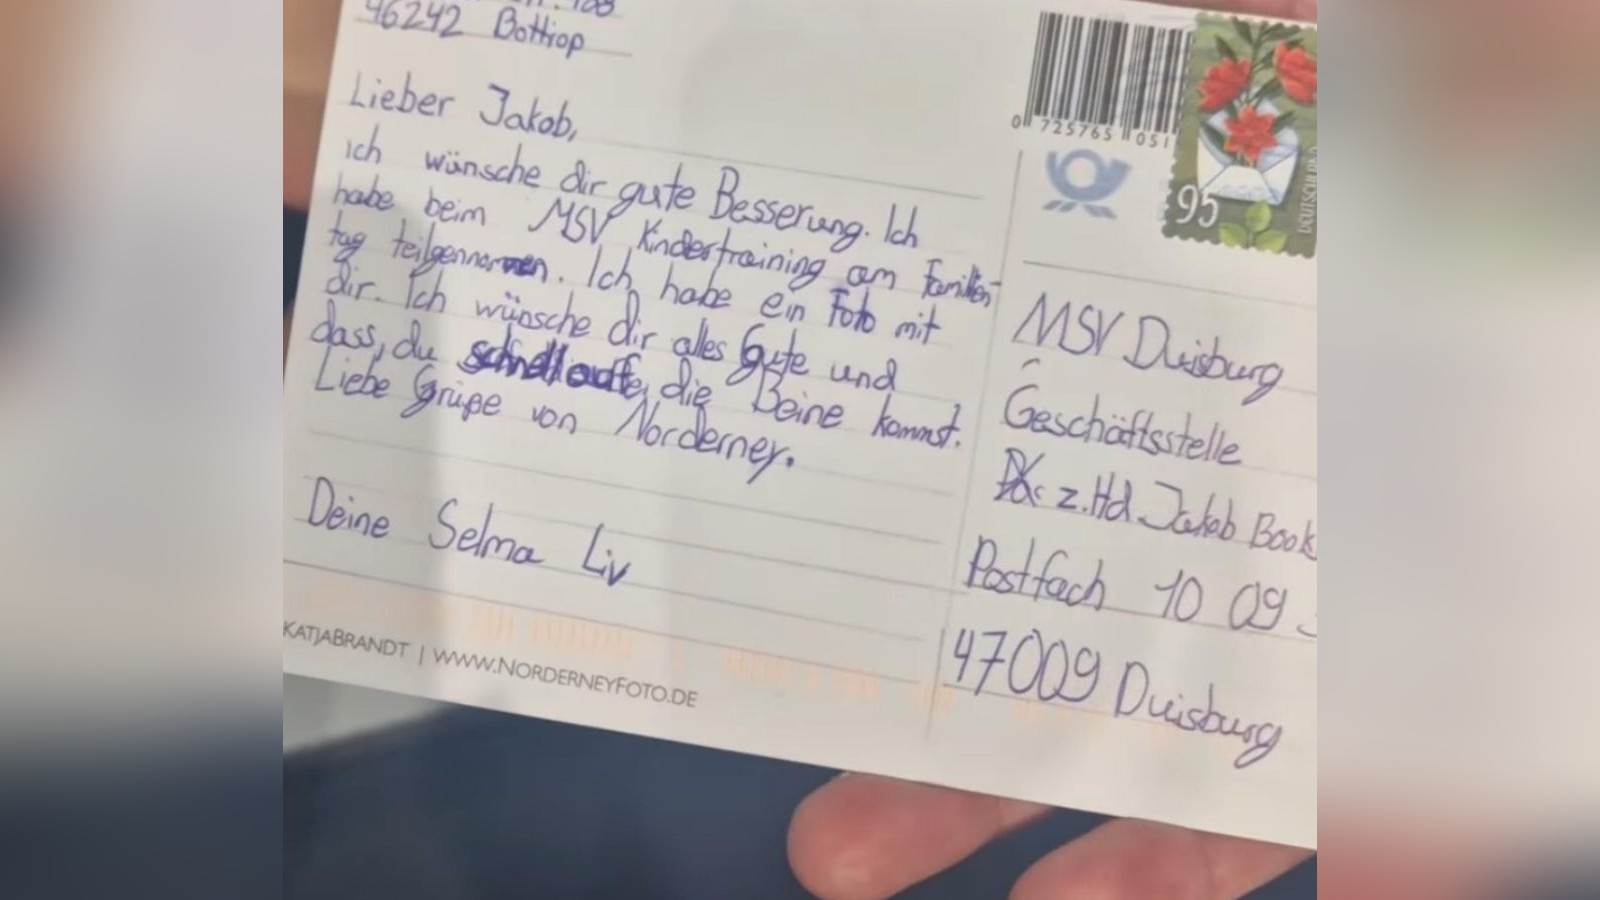 46242 Bottrop
Lieber Jakob,
ich wünsche dir gute Besserung. Ich
habe beim MSV Kindertraining am Familien-
tag teilgenommen. Ich habe ein Foto mit
dir. Ich wünsche dir alles Gute und
dass, du schnell auf die Beine kommst.
Liebe Grüße von Norderney.
Deine Selma Liv
KATJABRANDT | WWW.NORDERNEYFOTO.DE
0 725765 051
95
DEUTSCHLAND
MSV Duisburg
Geschäftsstelle
z.Hd. Jakob Book
Postfach 10 09
47009 Duisburg